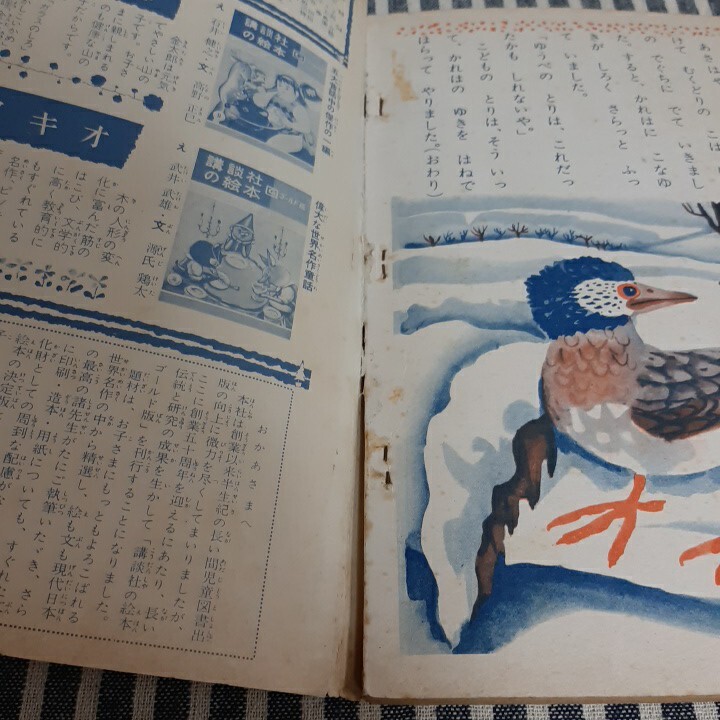 あさは
けて むくどりの こは
の でぐちに でて いきまし
た。すると、かれはに こなゆ
きが しろく さらっと ふっ
て いました。
「ゆうべの とりは、これだっ
たかも しれないや。」
こどもの とりは、そう いっ
て、かれはの ゆきを はねで
はらって やりました。(おわり)
講談社の絵本
え 石井 健之 文
講談社の絵本
偉大な世界名作童話
え 武井 武雄 文
金太郎
オキ
木の人形の変
化に富んだ筋の
はこび、文学的
に高く、教育的に
もすぐれている
名作
おかあさまへ
本社は創業以来半生紀の長い間児童図書出
版の向上に微力を尽くしてまいりましたが、
ここに創業五十周年を迎えるにあたり、長い
伝統と研究の成果を生かして「講談社の絵本
ゴールド版」を刊行することになりました。
題材は、お子さまにもっともよろこばれる
世界名作の中から精選し、絵も文も現代日本
の最高の諸先生がたにご執筆いただき、さら
に印刷・造本・用紙についても、
化財としての周到な配慮が
絵本の決定版